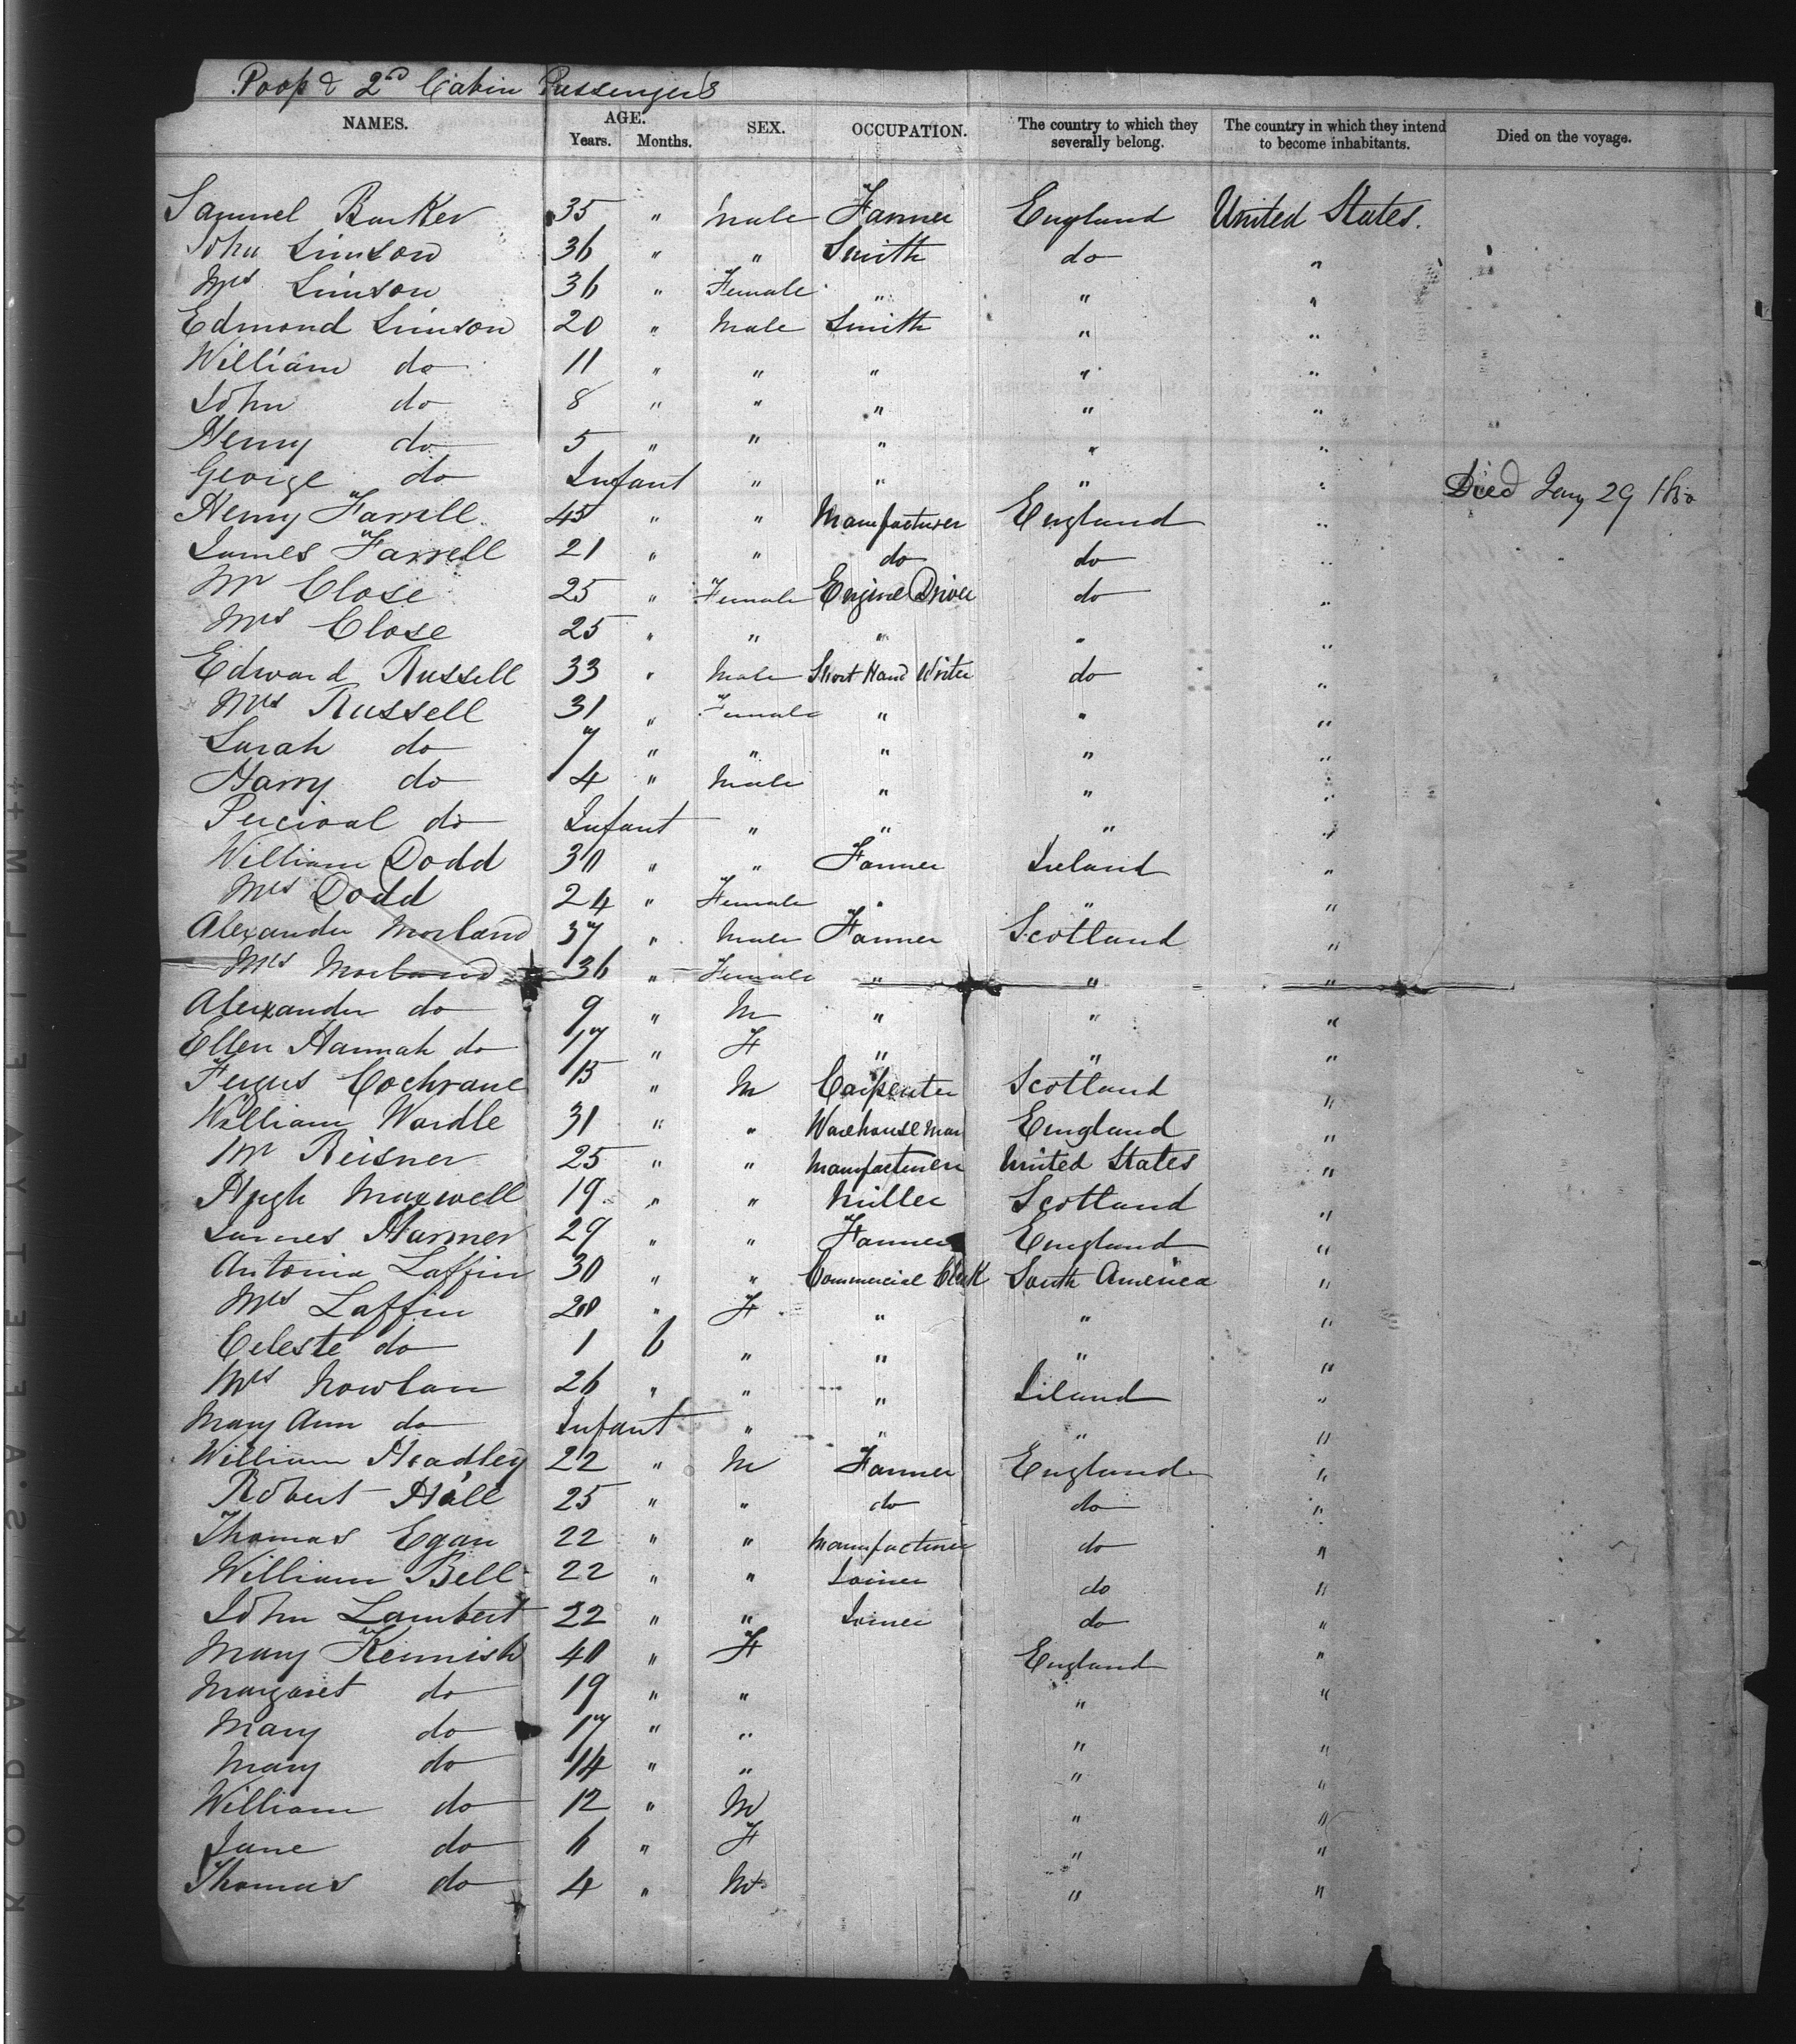 Poop & 2nd Cabin Passengers
NAMES. AGE. Years. Months. SEX. OCCUPATION. The country to which they severally belong. The country in which they intend to become inhabitants. Died on the voyage.
Samuel Barker 35 " Male Farmer England United States.
John Simson 36 " " Smith do "
Mrs Simson 36 " Female " " "
Edmond Simson 20 " Male Smith " "
William do 11 " " " " "
John do 8 " " " " "
Henry do 5 " " " " "
George do Infant " " " " Died Jany 29
Henry Farrell 45 " " Manufacturer England "
James Farrell 21 " " do do "
Mr Close 25 " Female Engine Driver do "
Mrs Close 25 " " " " "
Edward Russell 33 " Male Short Hand Writer do "
Mrs Russell 31 " Female " " "
Sarah do 7 " " " " "
Harry do 4 " Male " " "
Percival do Infant " " " "
William Dodd 30 " " Farmer Ireland "
Mrs Dodd 24 " Female " " "
Alexander Morland 37 " Male Farmer Scotland "
Mrs Morland 36 " Female " " "
Alexander do 9 " M " " "
Ellen Hannah do 17 " F " " "
Fergus Cochrane 15 " M Carpenter Scotland "
William Wardle 31 " " Warehouse man England "
Mr Reisner 25 " " Manufacturer United States "
Hugh Maxwell 19 " " Miller Scotland "
James Harmer 29 " " Farmer England "
Antonia Laffin 30 " " Commercial Clerk South America "
Mrs Laffin 20 " F " " "
Celeste do 1 6 " " " "
Mrs Nowlan 26 " " " Ireland "
Mary Ann do Infant " " " "
William Headley 22 " M Farmer England "
Robert Hall 25 " " do do "
Thomas Egan 22 " " Manufacturer do "
William Bell 22 " " Joiner do "
John Lambert 22 " " Joiner do "
Mary Kennish 40 " F England "
Margaret do 19 " " " "
Mary do 17 " " " "
Mary do 14 " " " "
William do 12 " M " "
Jane do 6 " F " "
Thomas do 4 " M " "
KODAK S.A.FETY▲FILM ++